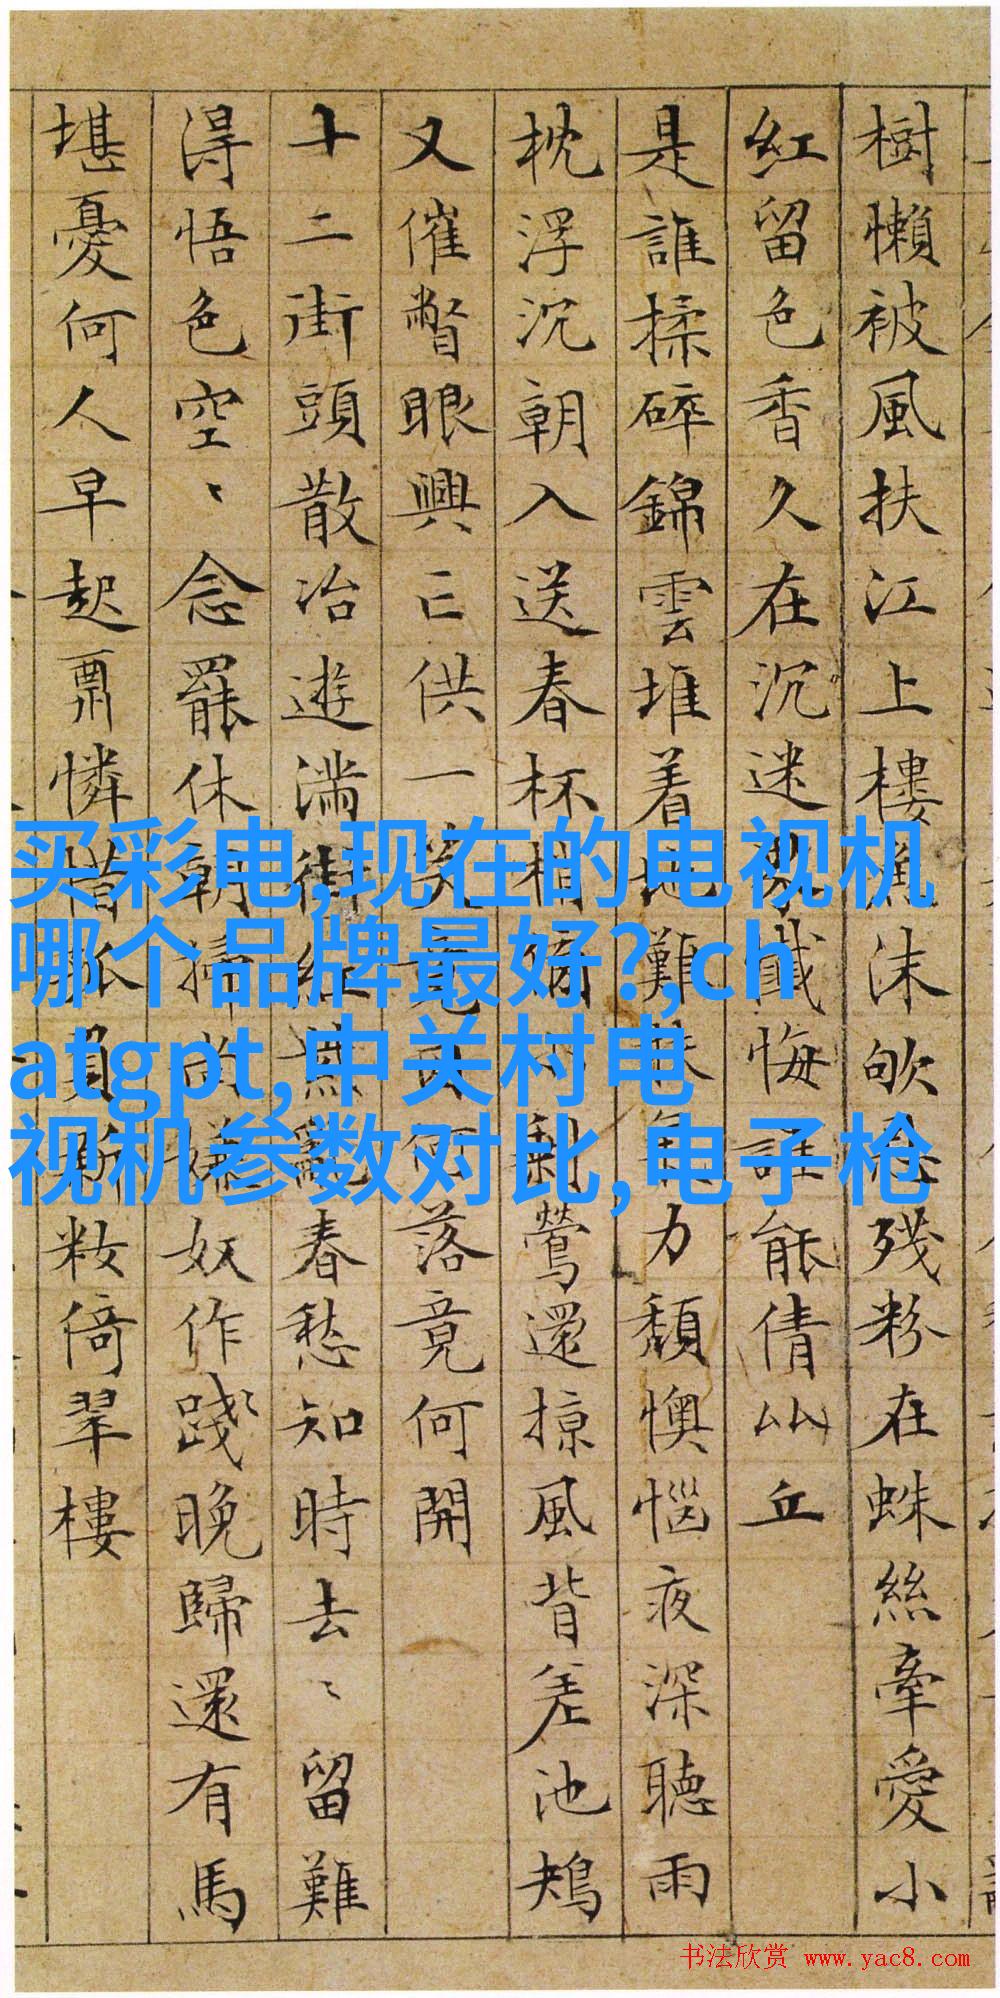 樹懶被風扶江上樓
沫欨
殘粉在蛛絲牽愛小
紅留色香久在沉迷
懺悔誰能倩比丘
是誰揉碎錦雲堆着地難扶
力頹懊惱夜深聽雨
枕浮沉朝入送春杯相
鶯還掠風背差池鳷
又催瞥眼興亡供一笑
落竟何開
十二街頭散冶遊滿街紅
春愁知時去〻留難
得悟色空〻念罷休朝掃
奴作踐晚歸還有馬
堪憂何人早起肅憐惜孤負新
籹倚翠樓
买彩电,现在的电视机
哪个品牌最好?,ch
atgpt,中关村电
视机参数对比,电子枪
书法欣赏 www.yac8.com